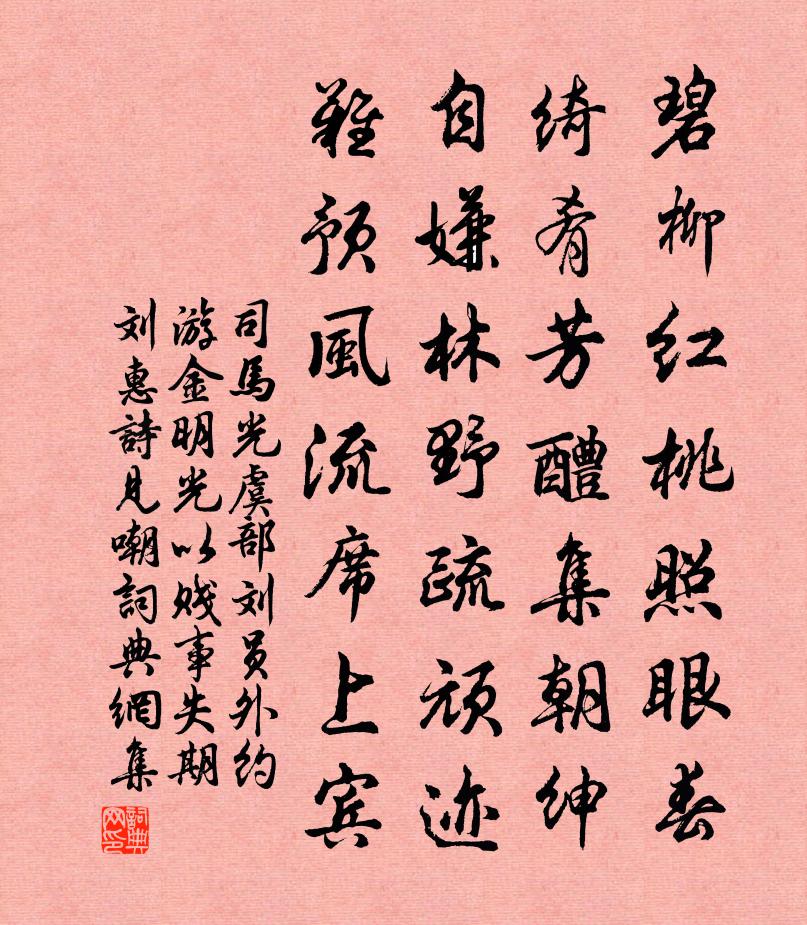 碧柳红桃照眼春
绮肴芳醴集朝绅
自嫌林野疏顽迹
难预風流席上宾
司馬光虞部刘員外约
游金明光以贱事失期
刘惠詩見嘲詞典網集
詞典网印